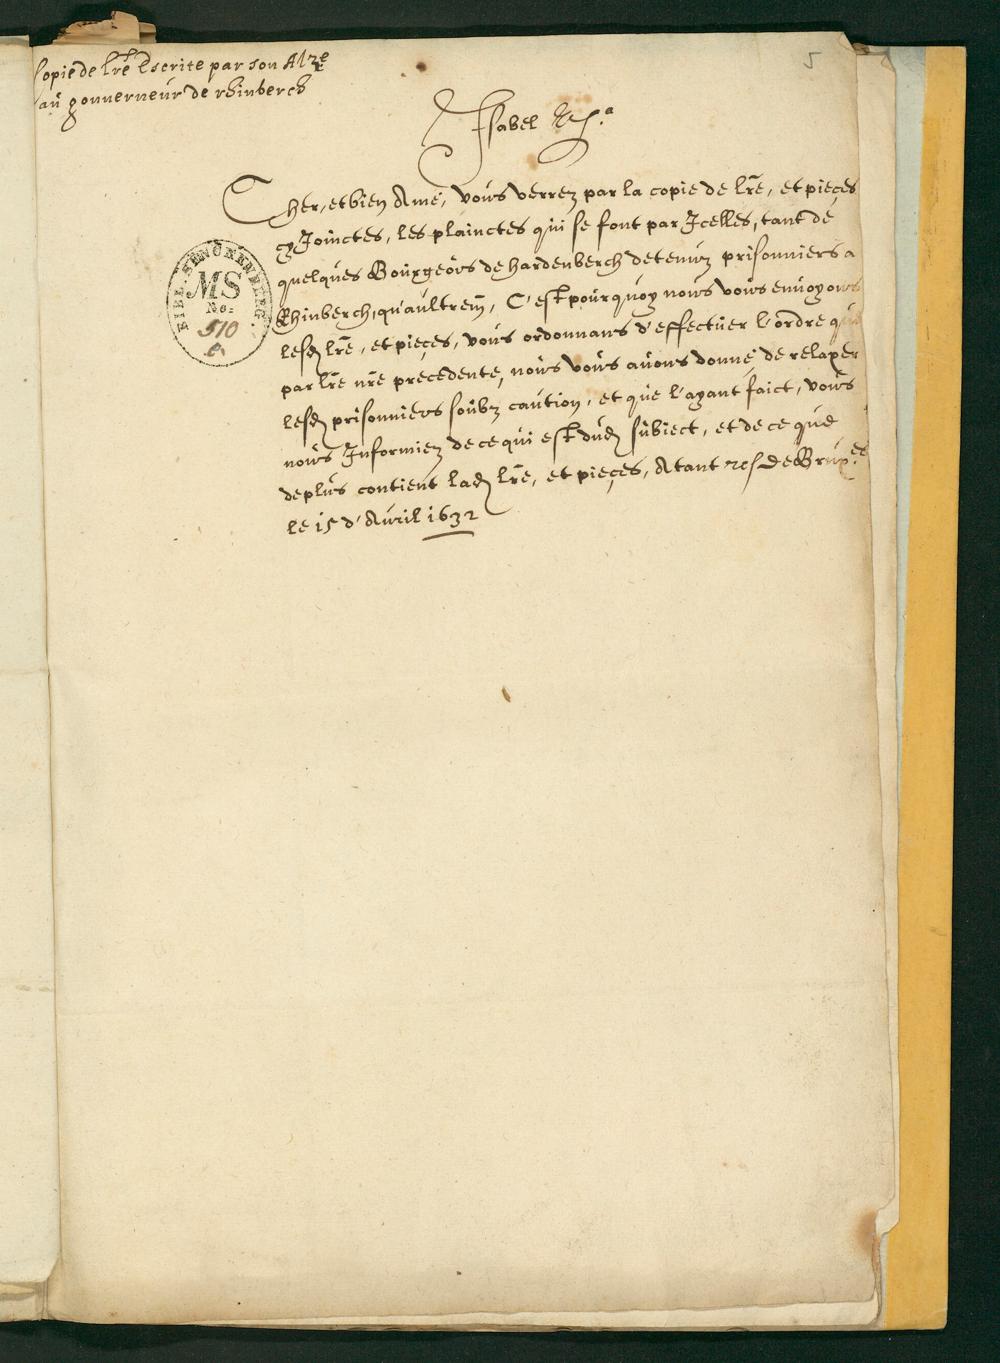 5
Copie de lre Escrite par son Alze
au gouverneur de rhinberch
Isabel
Cher, et bien Amé, vous verrez par la copie de lre, et pieçes
cy Joinctes, les plainctes qui se font par Icelles, tant de
quelques Bourgeois de hardenberch detenuz prisonniers a
Rhinberch, qu'aultrem, C'est pourquoy nous vous envoyons
lesd lre, et pieçes, vous ordonnans d'effectuer l'ordre que
par lre nre precedente, nous vous avons donné, de relaxer
lesd prisonniers soubz caution, et que l'ayant faict, vous
nous Informiez de ce qui est dud subiect, et de ce que
deplus contient lad lre, et pieçes, Atant De Bruxles
le 15 d'Avril 1632
BIBL. SENCKENBERG.
MS
No:
510
e.